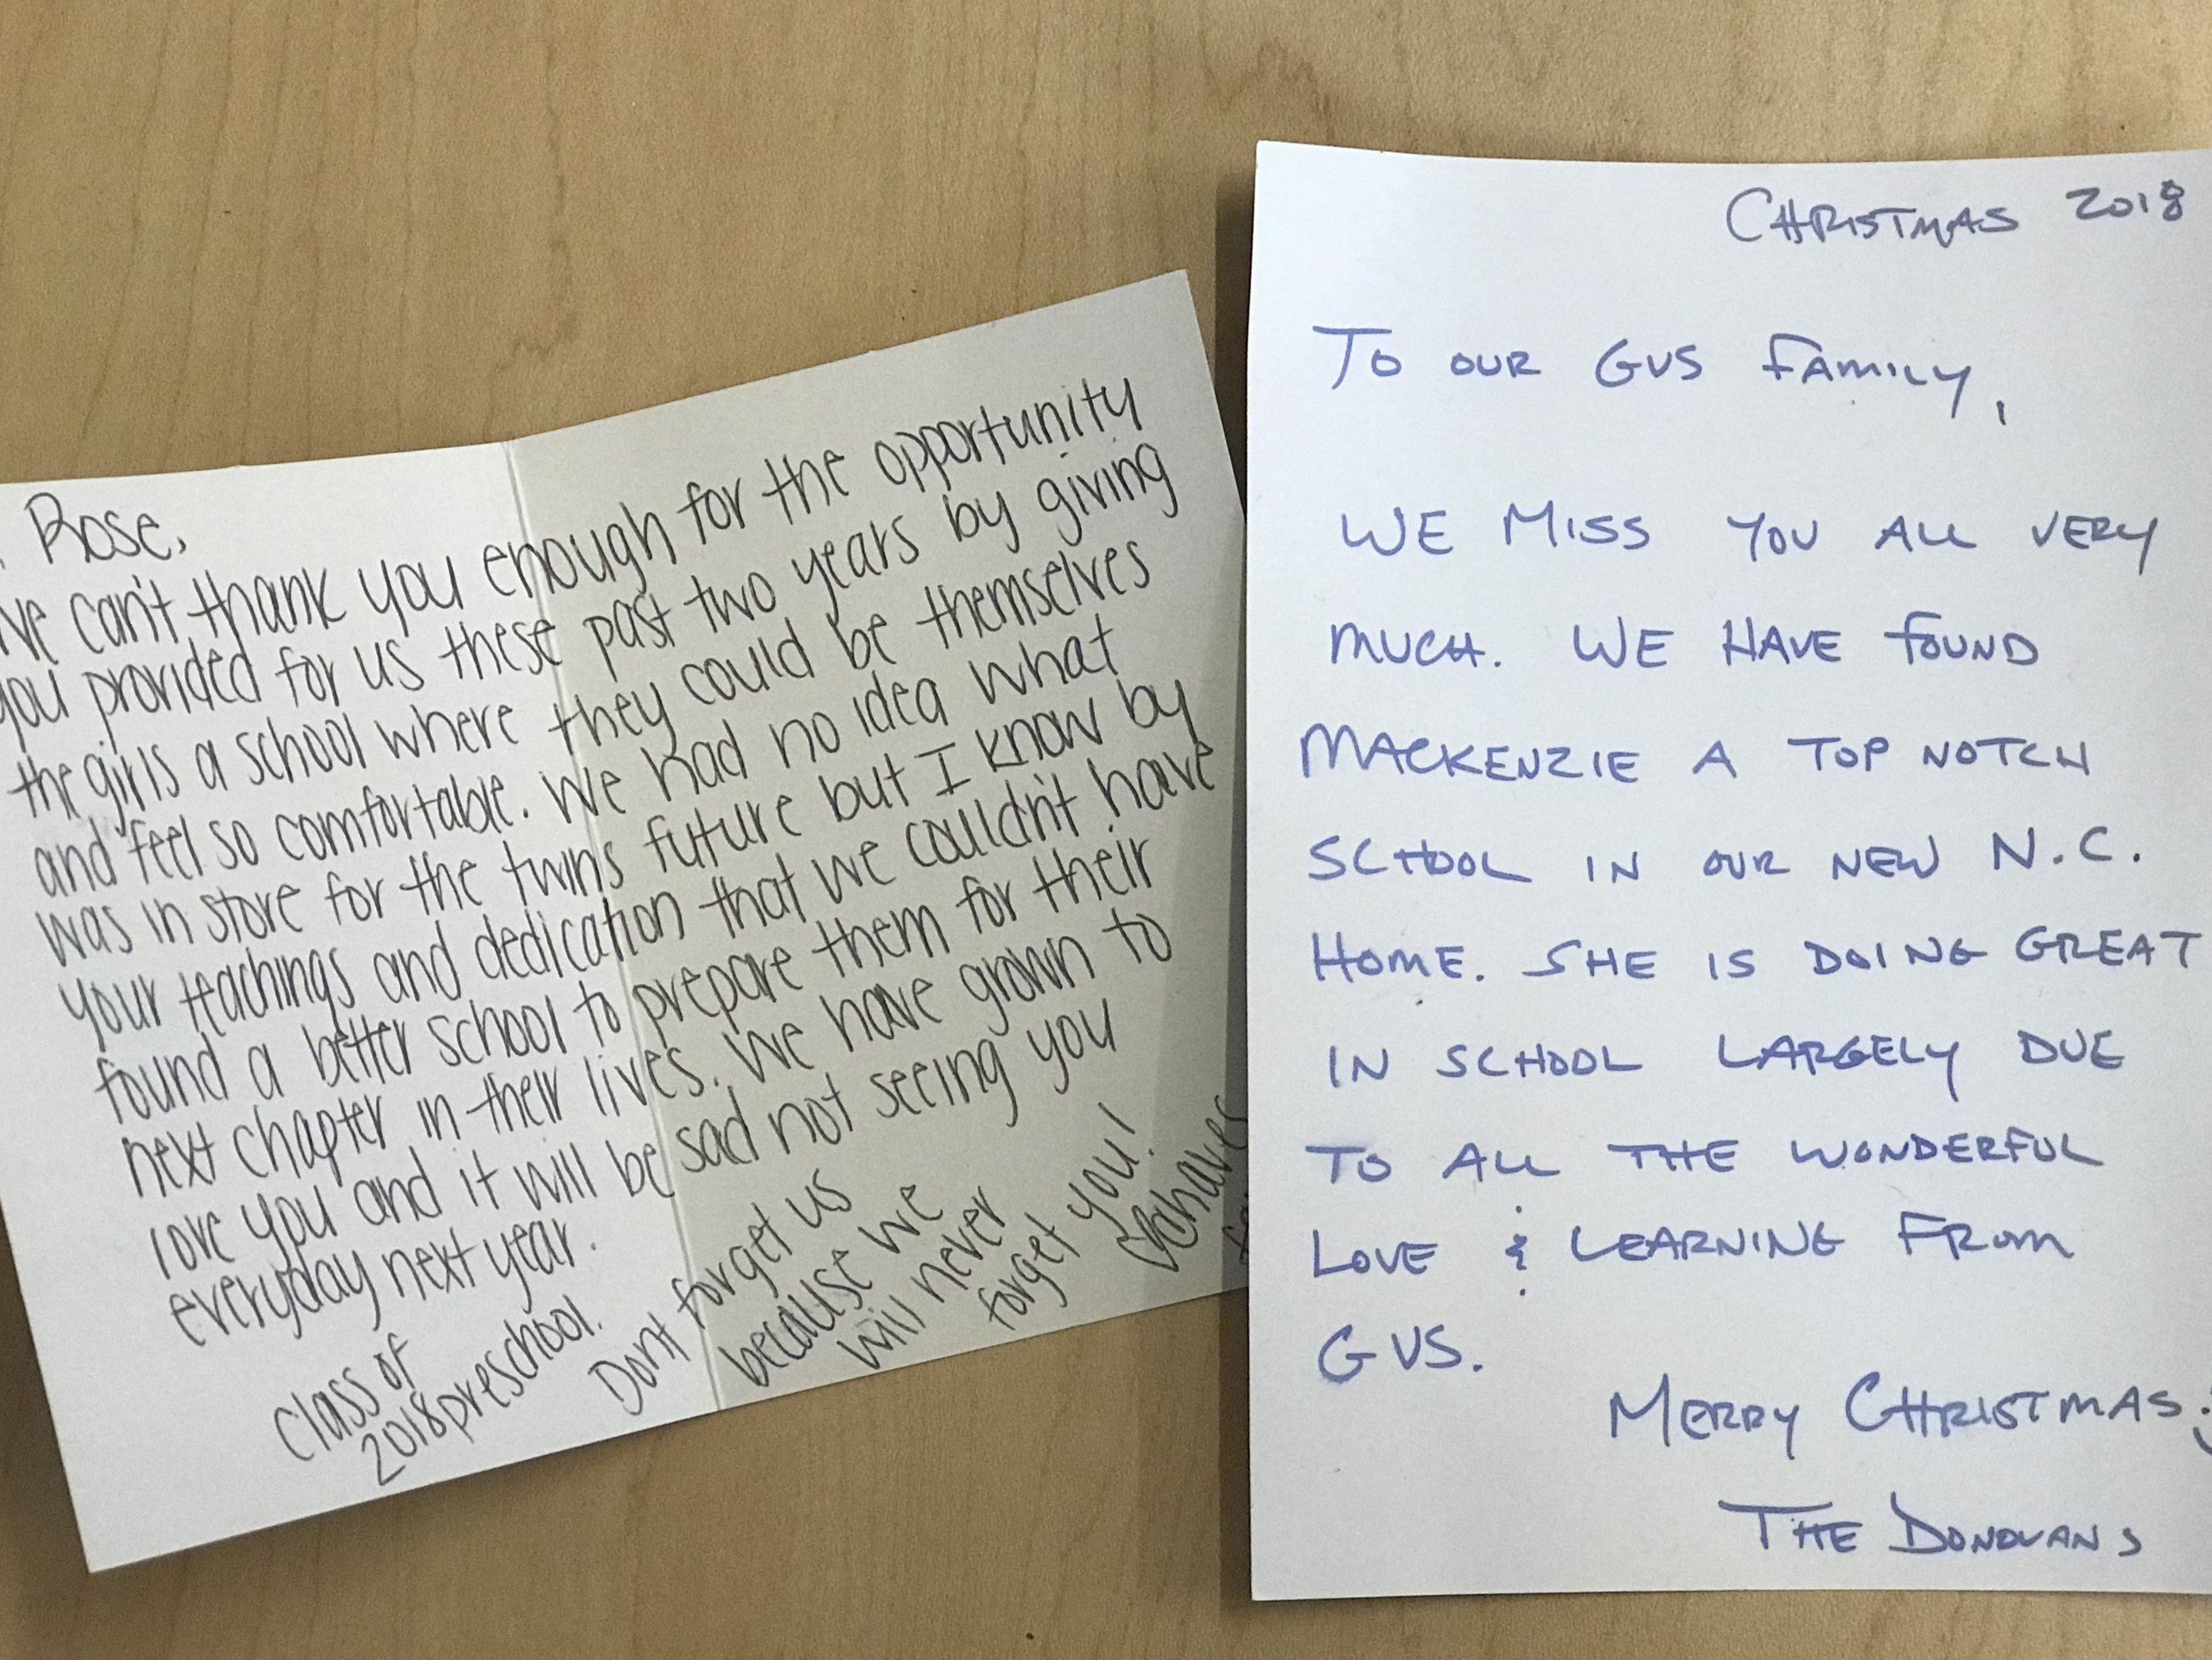 Rose,
We can't thank you enough for the opportunity
you provided for us these past two years by giving
the girls a school where they could be themselves
and feel so comfortable. We had no idea what
was in store for the twins future but I know by
your teachings and dedication that we couldn't have
found a better school to prepare them for their
next chapter in their lives. We have grown to
love you and it will be sad not seeing you
everyday next year.
Class of
2018 preschool.
Dont forget us
because we
will never
forget you!
CHRISTMAS 2018
TO OUR GUS FAMILY,
WE MISS YOU ALL VERY
MUCH. WE HAVE FOUND
MACKENZIE A TOP NOTCH
SCHOOL IN OUR NEW N.C.
HOME. SHE IS DOING GREAT
IN SCHOOL LARGELY DUE
TO ALL THE WONDERFUL
LOVE & LEARNING FROM
GUS.
MERRY CHRISTMAS!
THE DONOVANS